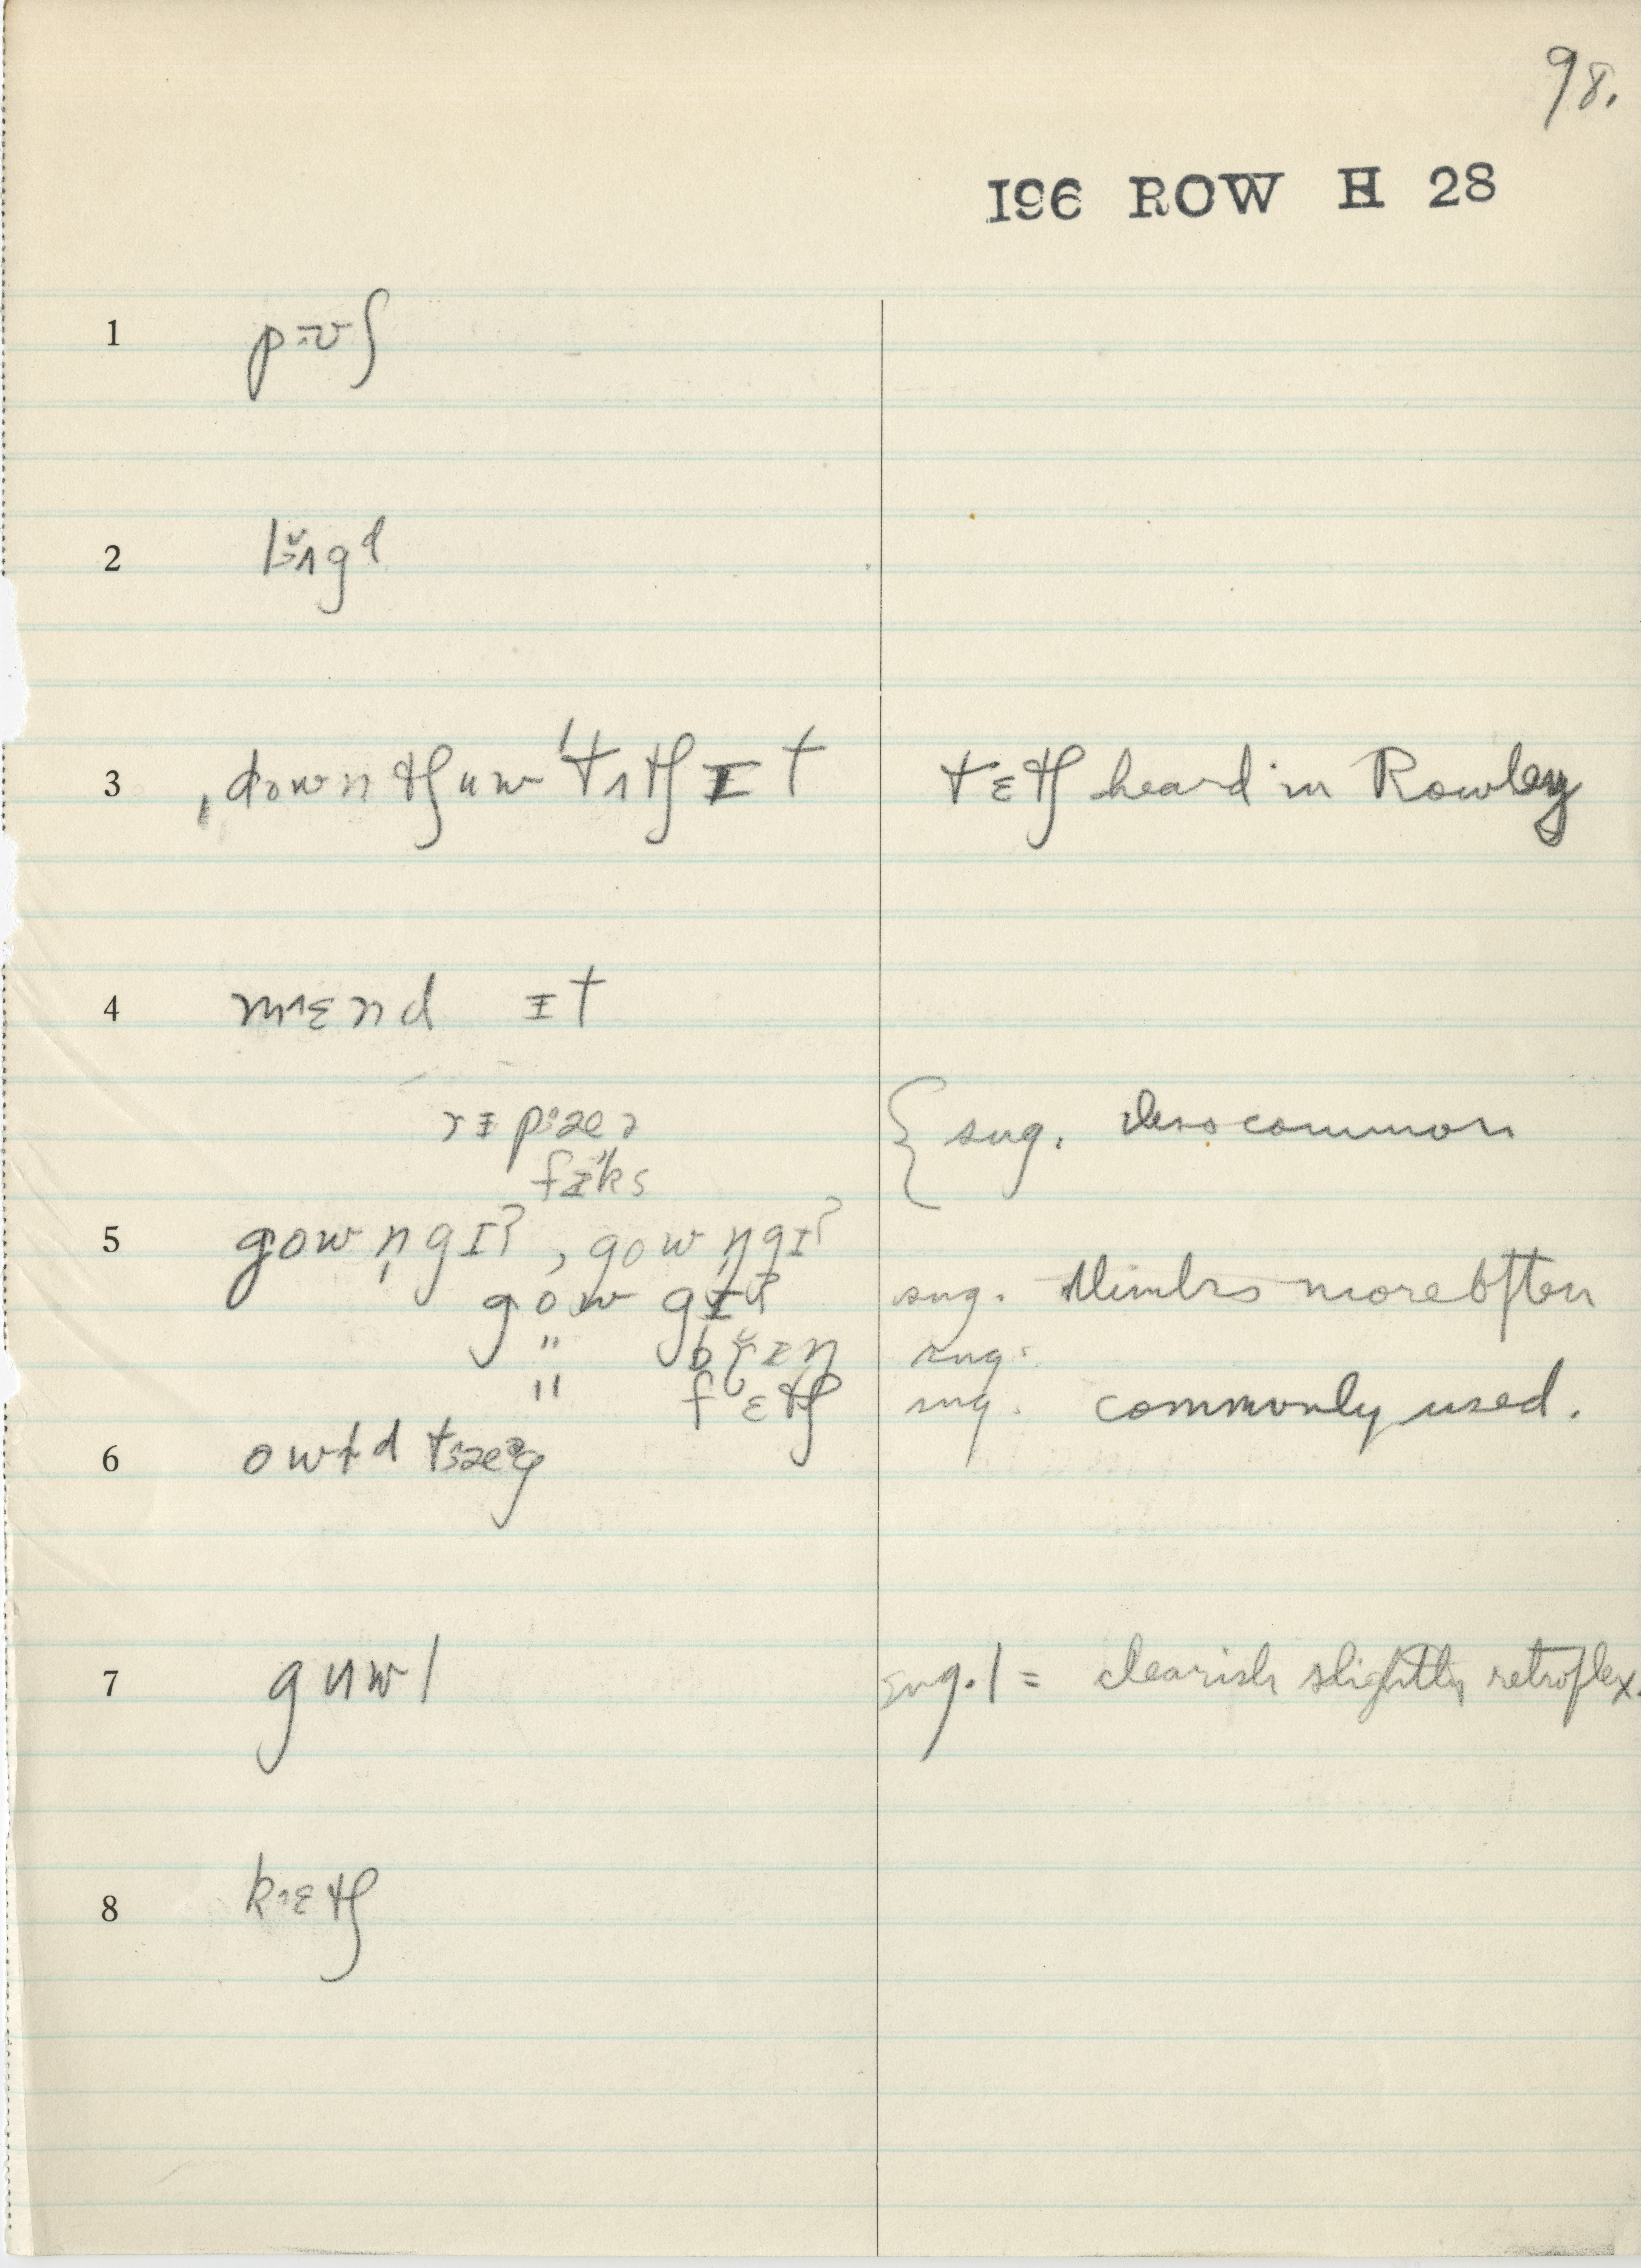 98.
196 ROW H 28
1 pʊʃ
2 lʌgd
3 ˌdownʧuw ˈtʌʧ ɪt tɛʧ heard in Rowley
4 mɛnd ɪt
sug. less common
fɪks
5 gow n̩ gɪt, gow n̩ gɪt
gow gɪt sug. thinks more often
" sug.
" fɛʧ sug. commonly used.
6
7 guwl sug. l = clearish slightly retroflex.
8 kɛʧ